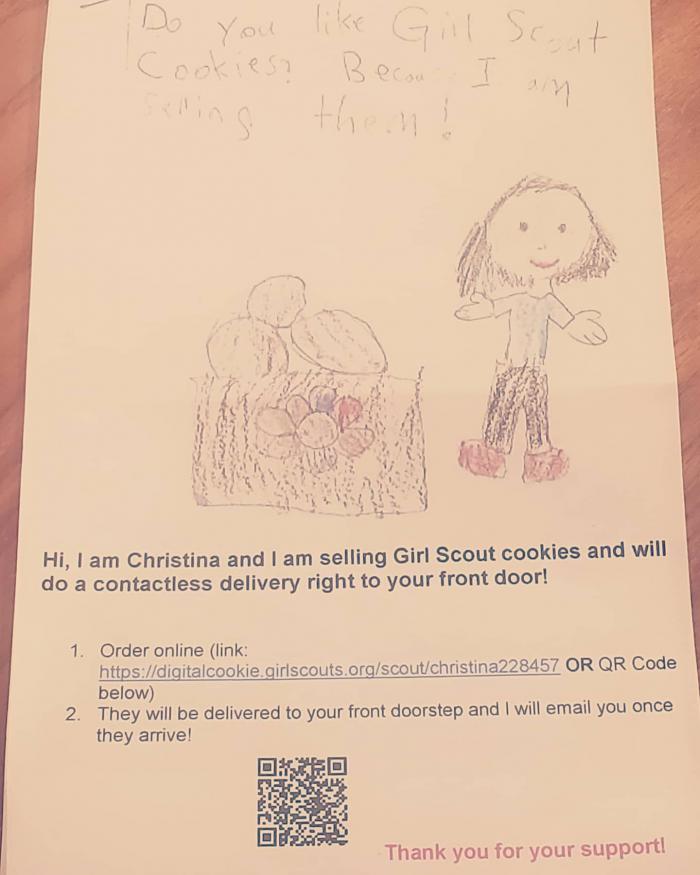 Do you like Girl Scout
Cookies? Becaus I am
selling them!
Hi, I am Christina and I am selling Girl Scout cookies and will
do a contactless delivery right to your front door!
1. Order online (link:
https://digitalcookie.girlscouts.org/scout/christina228457 OR QR Code
below)
2. They will be delivered to your front doorstep and I will email you once
they arrive!
Thank you for your support!